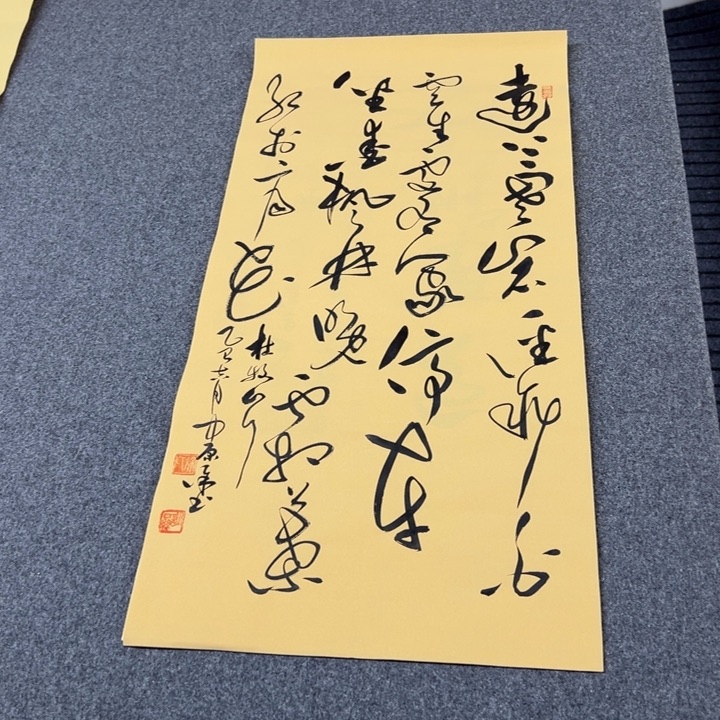 遠上寒山石徑斜白
雲生處有人家停車
坐愛楓林晚霜葉
紅於二月花
杜牧山行
乙巳六月